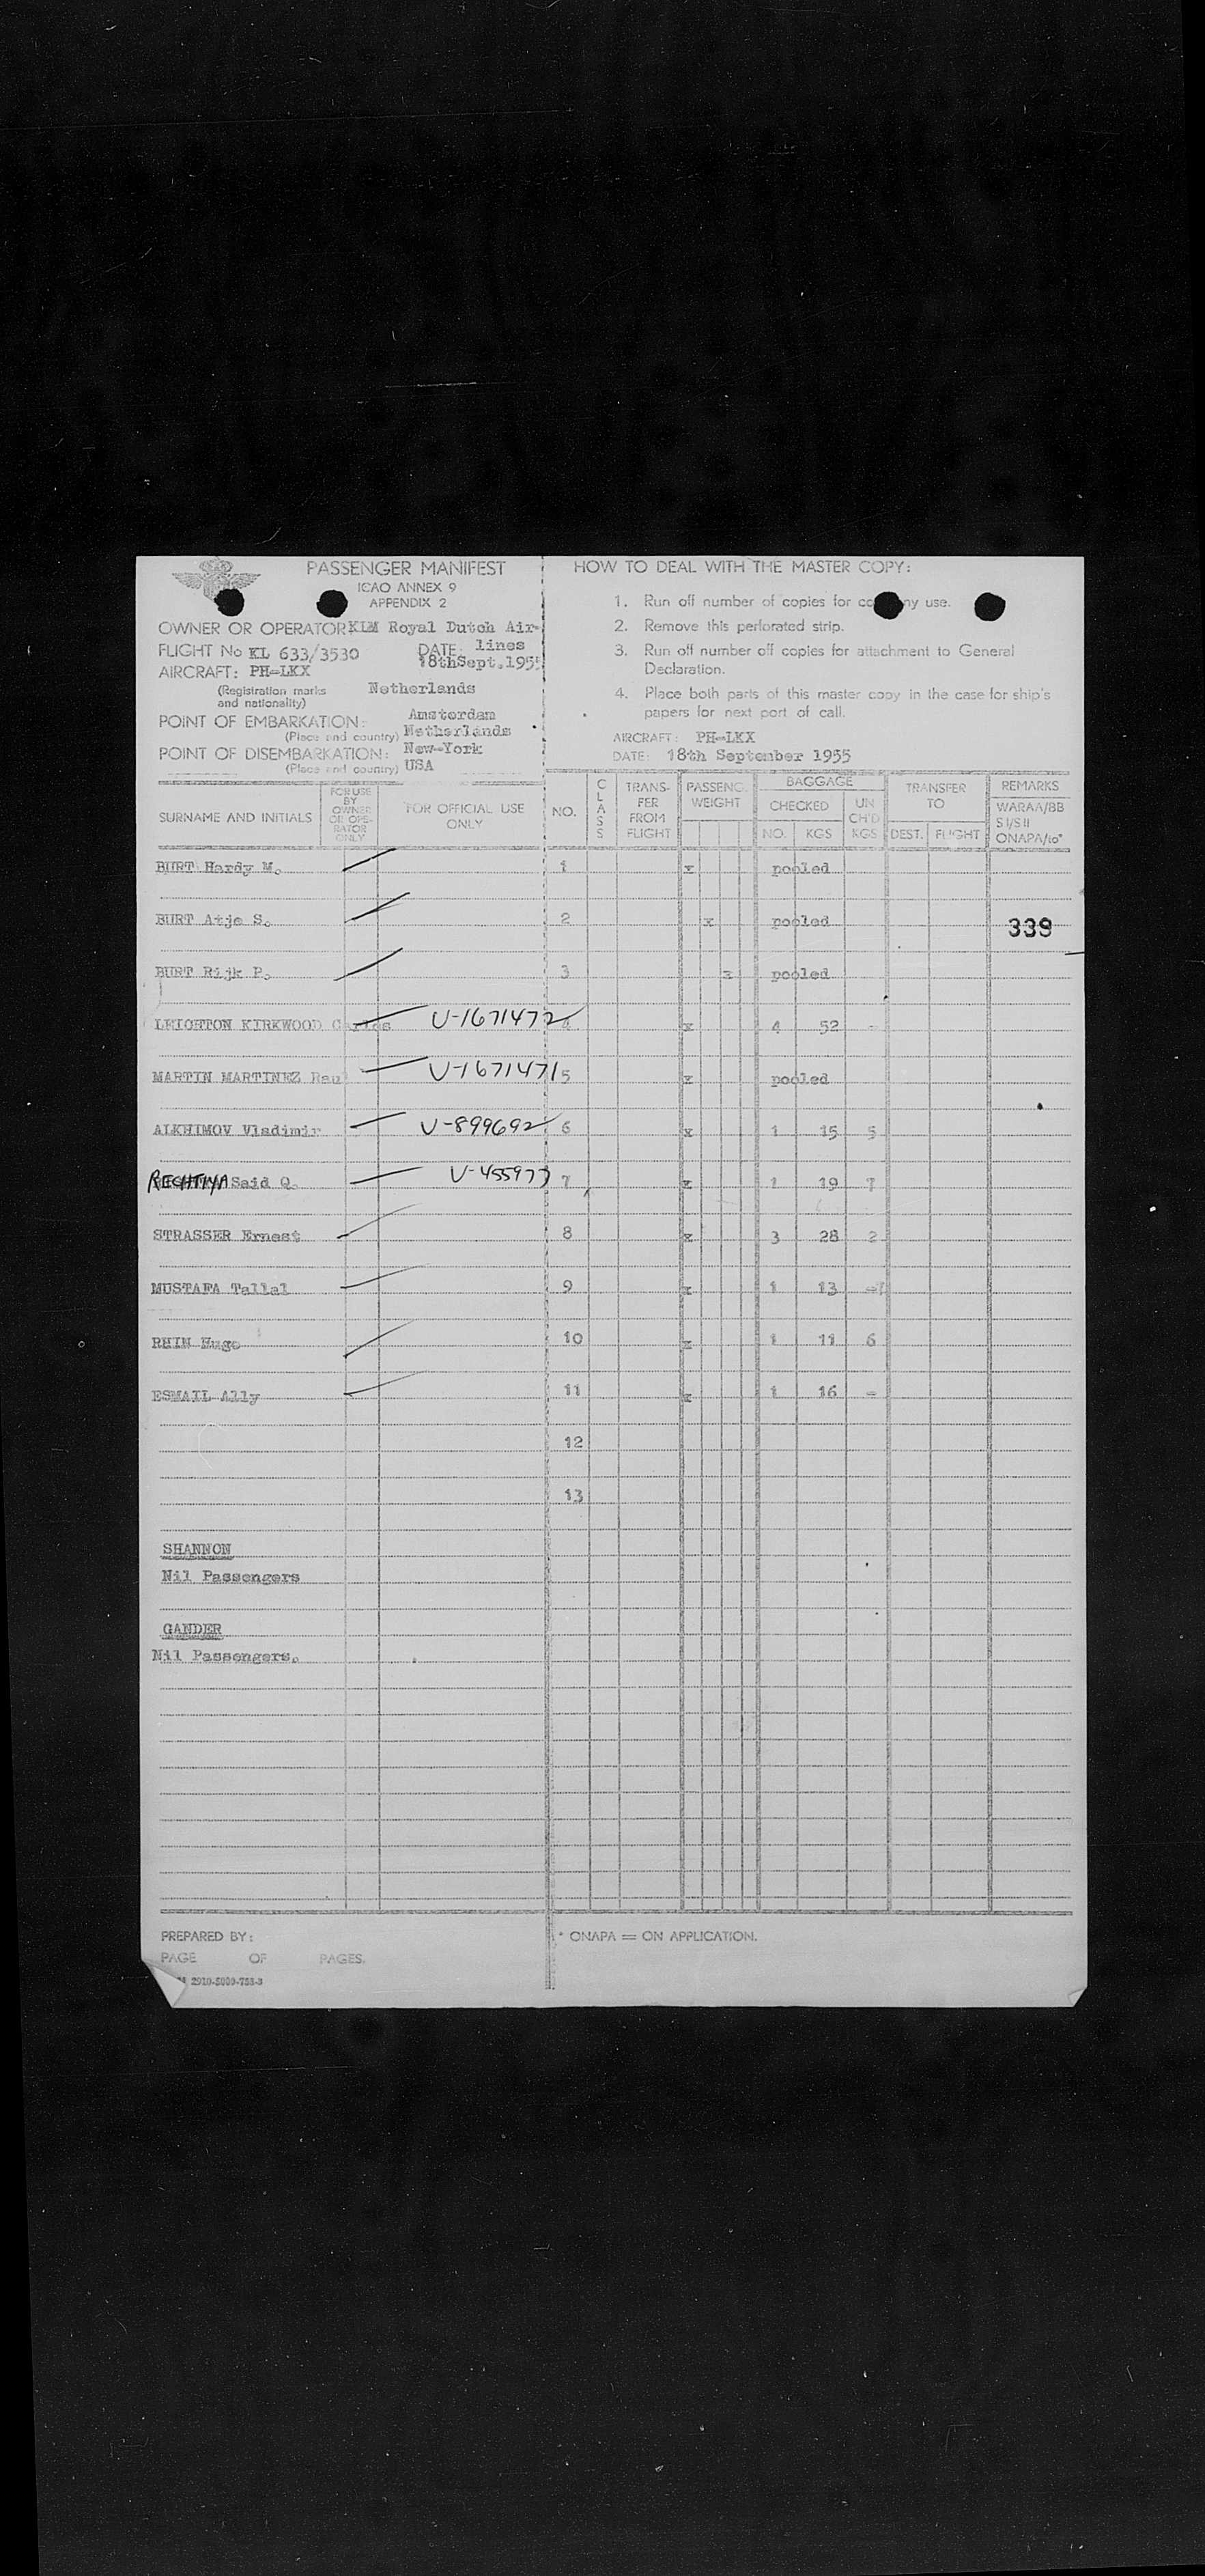 PASSENGER MANIFEST
ICAO ANNEX 9
APPENDIX 2
OWNER OR OPERATOR KLM Royal Dutch Air-
lines
FLIGHT No KL 633/3530 DATE: 18thSept.1955
AIRCRAFT: PH-LKX
(Registration marks and nationality) Netherlands
POINT OF EMBARKATION: Amsterdam
(Place and country) Netherlands
POINT OF DISEMBARKATION: New-York
(Place and country) USA
HOW TO DEAL WITH THE MASTER COPY:
1. Run off number of copies for use.
2. Remove this perforated strip.
3. Run off number off copies for attachment to General
Declaration.
4. Place both parts of this master copy in the case for ship's
papers for next port of call.
AIRCRAFT: PH-LKX
DATE: 18th September 1955
SURNAME AND INITIALS
FOR USE BY OWNER OR OPE-RATOR ONLY
FOR OFFICIAL USE ONLY
NO.
CLASS
TRANS-FER FROM FLIGHT
PASSENG. WEIGHT
BAGGAGE
CHECKED
NO. KGS
UN CH'D KGS
TRANSFER TO
DEST. FLIGHT
REMARKS
WARAA/BB
S I/S II
ONAPA/to*
BURT Hardy M. 1 x pooled
BURT Atje S. 2 x pooled 339
BURT Rijk P. 3 x pooled
LEIGHTON KIRKWOOD Carlos U-1671472 4 x 4 52 -
MARTIN MARTINEZ Raul U-1671471 5 x pooled
ALKHIMOV Vladimir U-899692 6 x 1 15 5
RECHTIYA Said Q. U-455973 7 x 1 19 7
STRASSER Ernest 8 x 3 28 2
MUSTAFA Tallal 9 x 1 13 -
RHIN Hugo 10 x 1 11 6
ESMAIL Ally 11 x 1 16 -
12
13
SHANNON
Nil Passengers
GANDER
Nil Passengers.
PREPARED BY:
PAGE OF PAGES.
2910-5000-753-3
* ONAPA = ON APPLICATION.